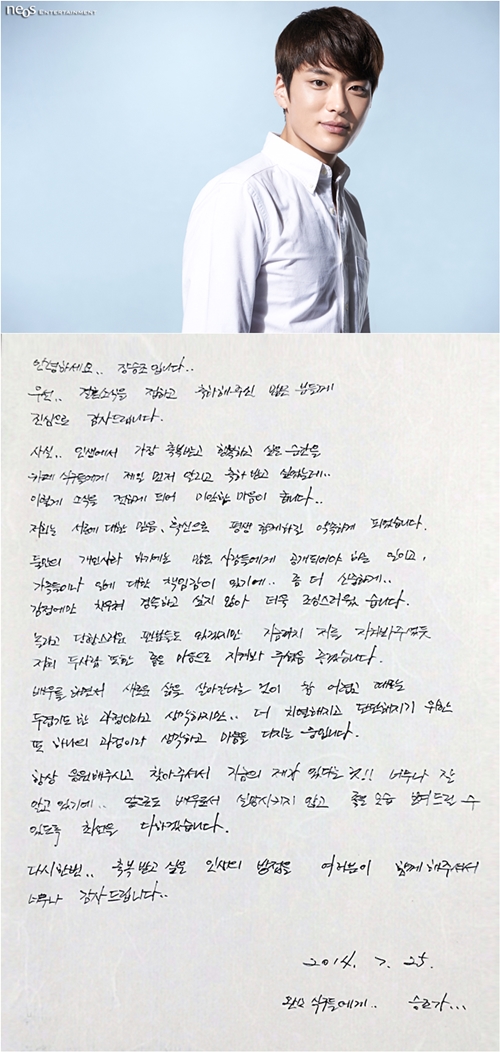 neos ENTERTAINMENT
안녕하세요.. 장승조입니다..
우선.. 결혼소식을 접하고 축하해주신 많은 분들께
진심으로 감사드립니다.
사실.. 인생에서 가장 축복받고 행복하고 싶은 순간을
카페 식구들에게 제일 먼저 알리고 축하 받고 싶었는데..
이렇게 소식을 전하게 되어 미안한 마음이 큽니다..
저희는 서로에 대한 믿음, 확신으로 평생 함께하길 약속하게 되었습니다.
둘만의 개인사라 하기에도 많은 사람들에게 공개되어야 하는 일이고,
가족들이나 일에 대한 책임감이 있기에.. 좀 더 신중하게..
감정에만 치우쳐 경솔하고 싶지 않아 더욱 조심스러웠습니다.
놀라고 당황스러운 분들도 있겠지만 지금까지 저를 지켜봐주셨듯
저희 두사람 또한 좋은 마음으로 지켜봐 주셨음 좋겠습니다.
배우를 하면서 새로운 삶을 살아간다는 것이 참 어렵고 때로는
두렵기도 한 과정이라고 생각하지만.. 더 치열해지고 단단해지기 위한
또 하나의 과정이라 생각하고 마음을 다지는 중입니다.
항상 응원해주시고 찾아주셔서 지금의 제가 있다는 것!! 너무나 잘
알고 있기에.. 앞으로도 배우로서 실망시키지 않고 좋은 모습 보여드릴 수
있도록 최선을 다하겠습니다.
다시한번.. 축복 받고 싶은 인생의 방점을 여러분이 함께 해주셔서
너무나 감사드립니다..
2014. 7. 25.
식구들에게.. 승조가...